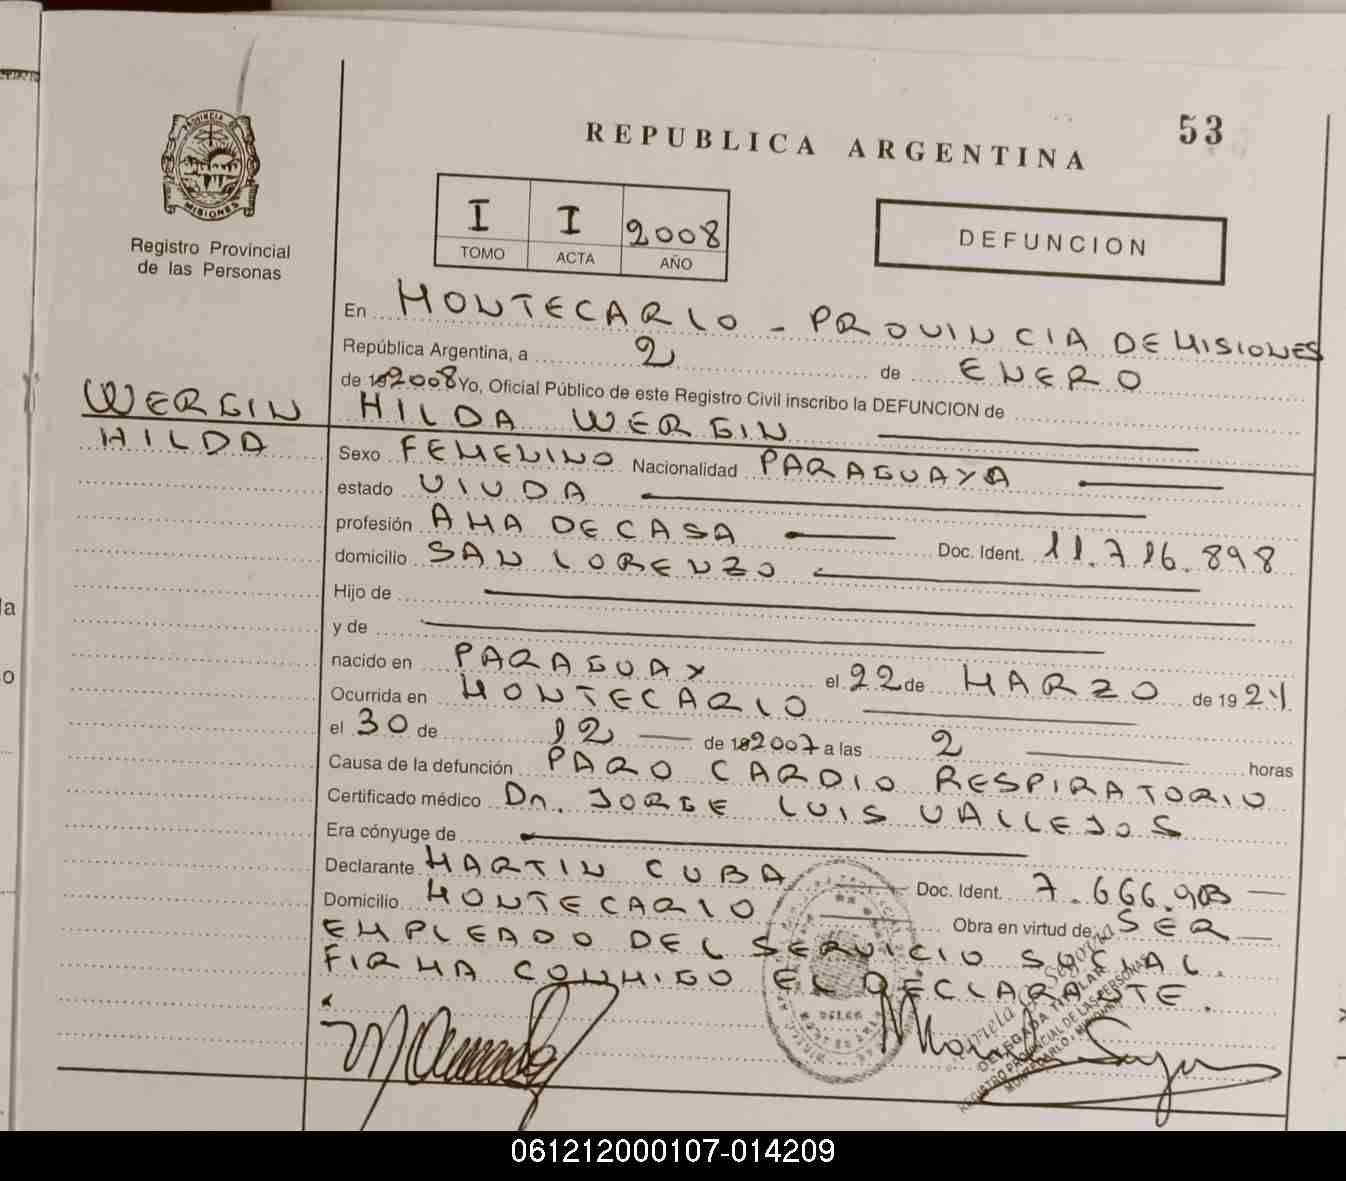 53
REPUBLICA ARGENTINA
PROVINCIA
MISIONES
Registro Provincial
de las Personas
I I 2008
TOMO ACTA AÑO
DEFUNCION
En MONTECARLO - PROVINCIA DE MISIONES
República Argentina, a 2 de ENERO
de 192008 Yo, Oficial Público de este Registro Civil inscribo la DEFUNCION de
WERGIN HILDA WERGIN
HILDA
Sexo FEMENINO Nacionalidad PARAGUAYA
estado VIUDA
profesión AMA DE CASA Doc. Ident. 11.716.898
domicilio SAN LORENZO
Hijo de
y de
nacido en PARAGUAY el 22 de MARZO de 1921
Ocurrida en MONTECARLO
el 30 de 12 de 192007 a las 2 horas
Causa de la defunción PARO CARDIO RESPIRATORIO
Certificado médico Dr. JORGE LUIS VALLEJOS
Era cónyuge de
Declarante MARTIN CUBA Doc. Ident. 7.666.903
Domicilio MONTECARLO Obra en virtud de SER
EMPLEADO DEL SERVICIO SOCIAL.
FIRMA CONMIGO EL DECLARANTE.
DELEGADA TITULAR
REGISTRO PROVINCIAL DE LAS PERSONAS
MONTECARLO, MISIONES
la
o
061212000107-014209